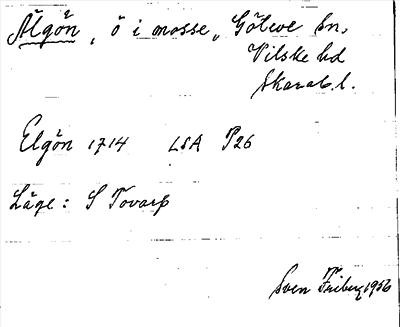 Älgön, ö i mosse, Göteve sn,
Vilske hd
Skarab. l.
Elgön 1714 LSA P26
Läge: S Tovarp
Sven Friberg 1956